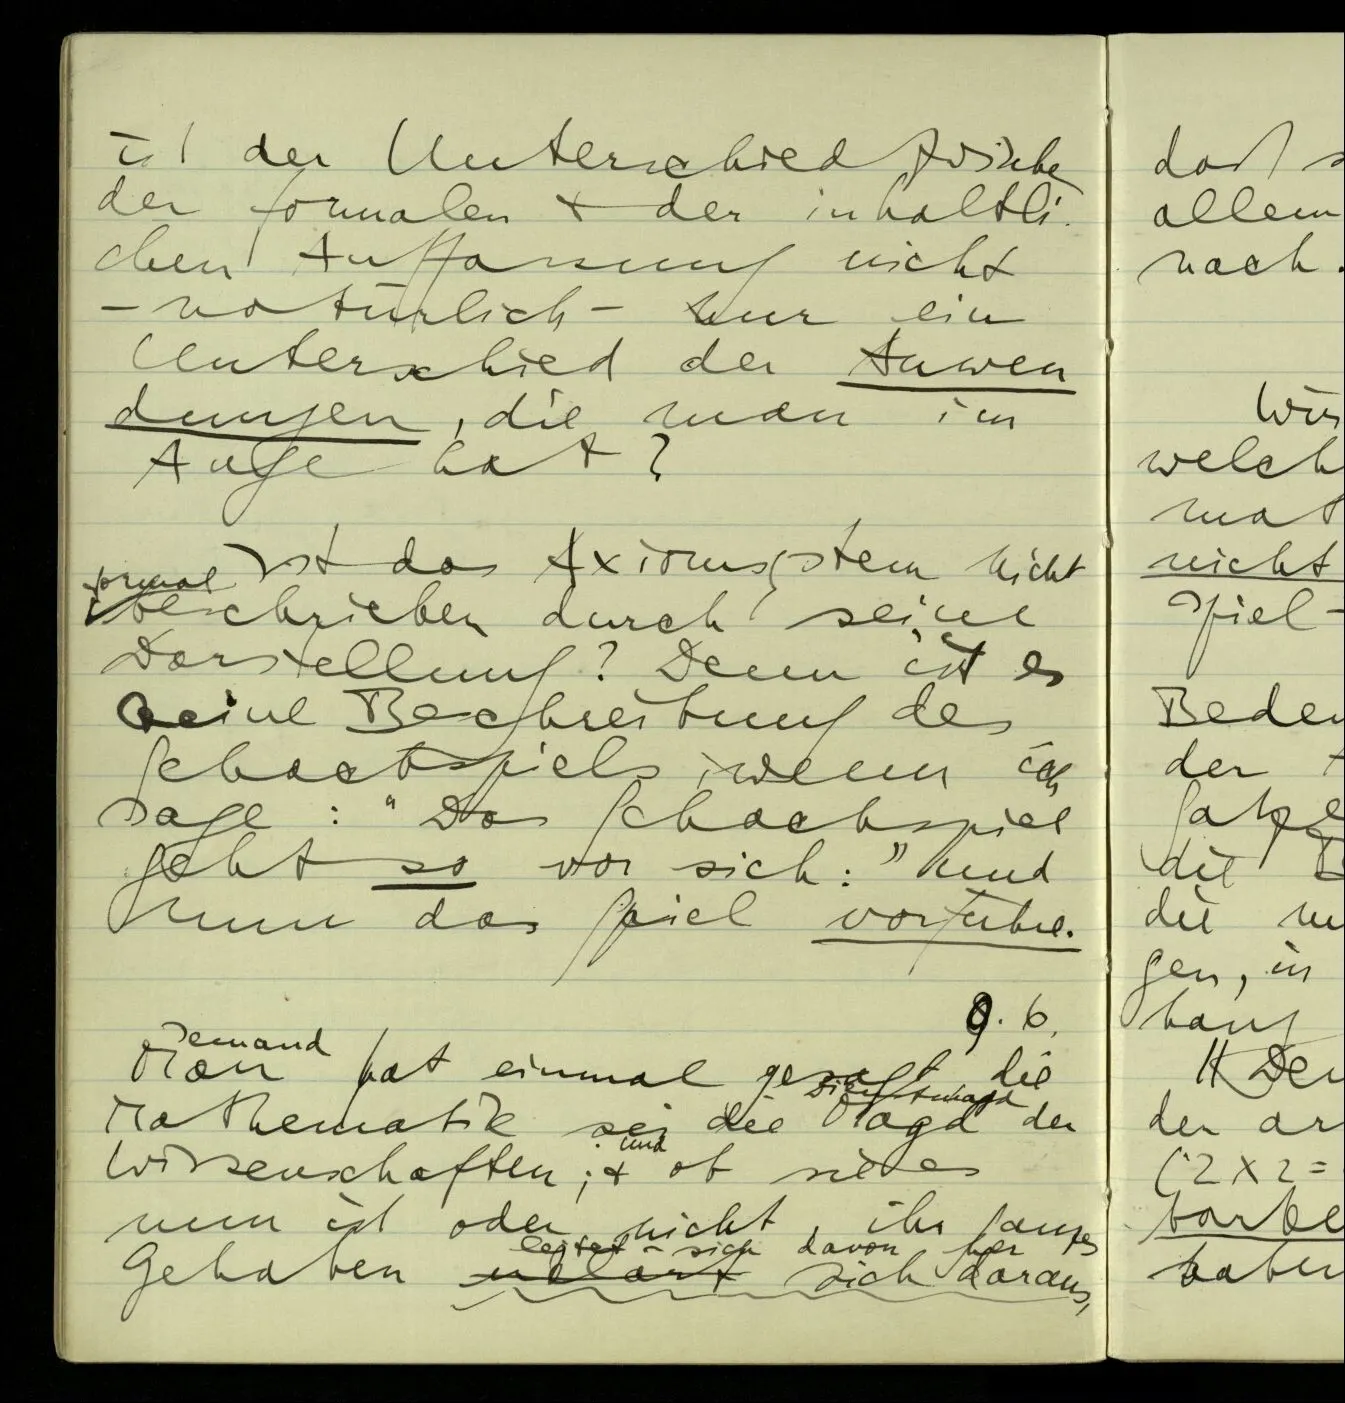 ist der Unterschied zwische
der formalen & der inhaltli
chen Auffassung nicht
– natürlich – nur ein
Unterschied der Anwen
dungen, die man im
Auge hat?
Ist das Axiomsystem nicht
formal
beschrieben durch seine
Darstellung? Denn ist es
keine Beschreibung des
Schachspiels, wenn ich
sage: "Das Schachspiel
geht so vor sich:" und
nun das Spiel vorführe.
9. 6.
Jemand
Man hat einmal gesagt die
Dienstmagd
Mathematik sei die Magd der
und
Wissenschaften; & ob sie es
nun ist oder nicht, ihr ganzes
leitet sich davon her
Gehaben erklärt sich daraus,
daß s
allem
nach.
Wir
welch
mat
nicht
Spiel-
Beden
der
Sätze
die B
die m
gen, in
hang
Den
der ar
(2 X 2 =
haben